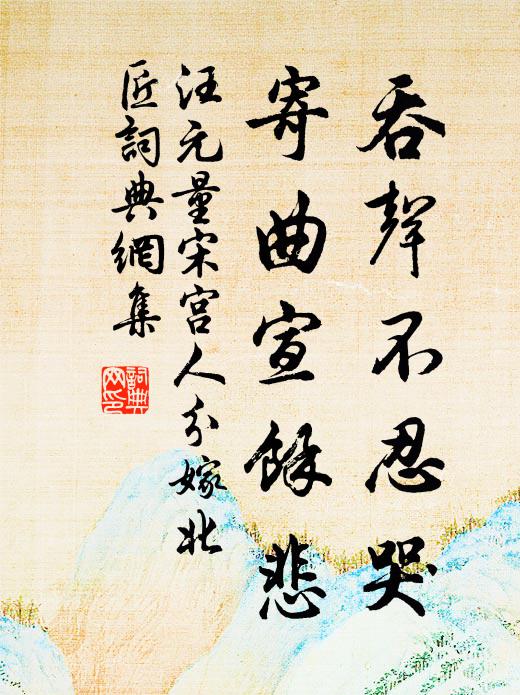 吞聲不忍哭
寄曲宣餘悲
汪元量宋宮人分嫁北
匠詞典網集
詞典網印